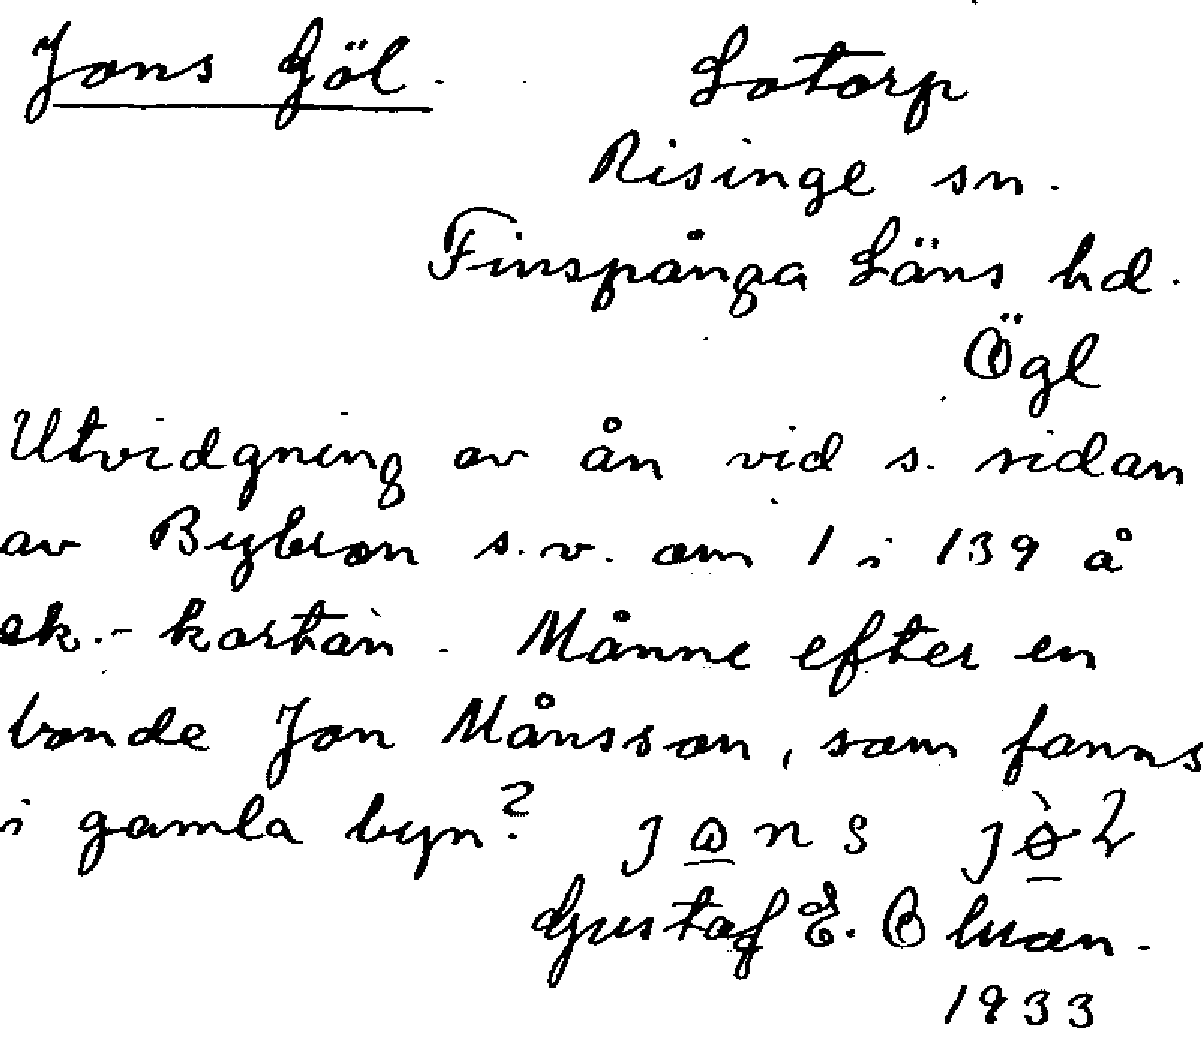 Jons Göl. Lotorp
Risinge sn.
Finspånga Läns hd.
Ögl
Utvidgning av ån vid s. sidan
av Bybron s.v. om 1 i 139 å
ek.-kartan. Månne efter en
bonde Jon Månsson, som fanns
i gamla byn?
Gustaf E.
1933